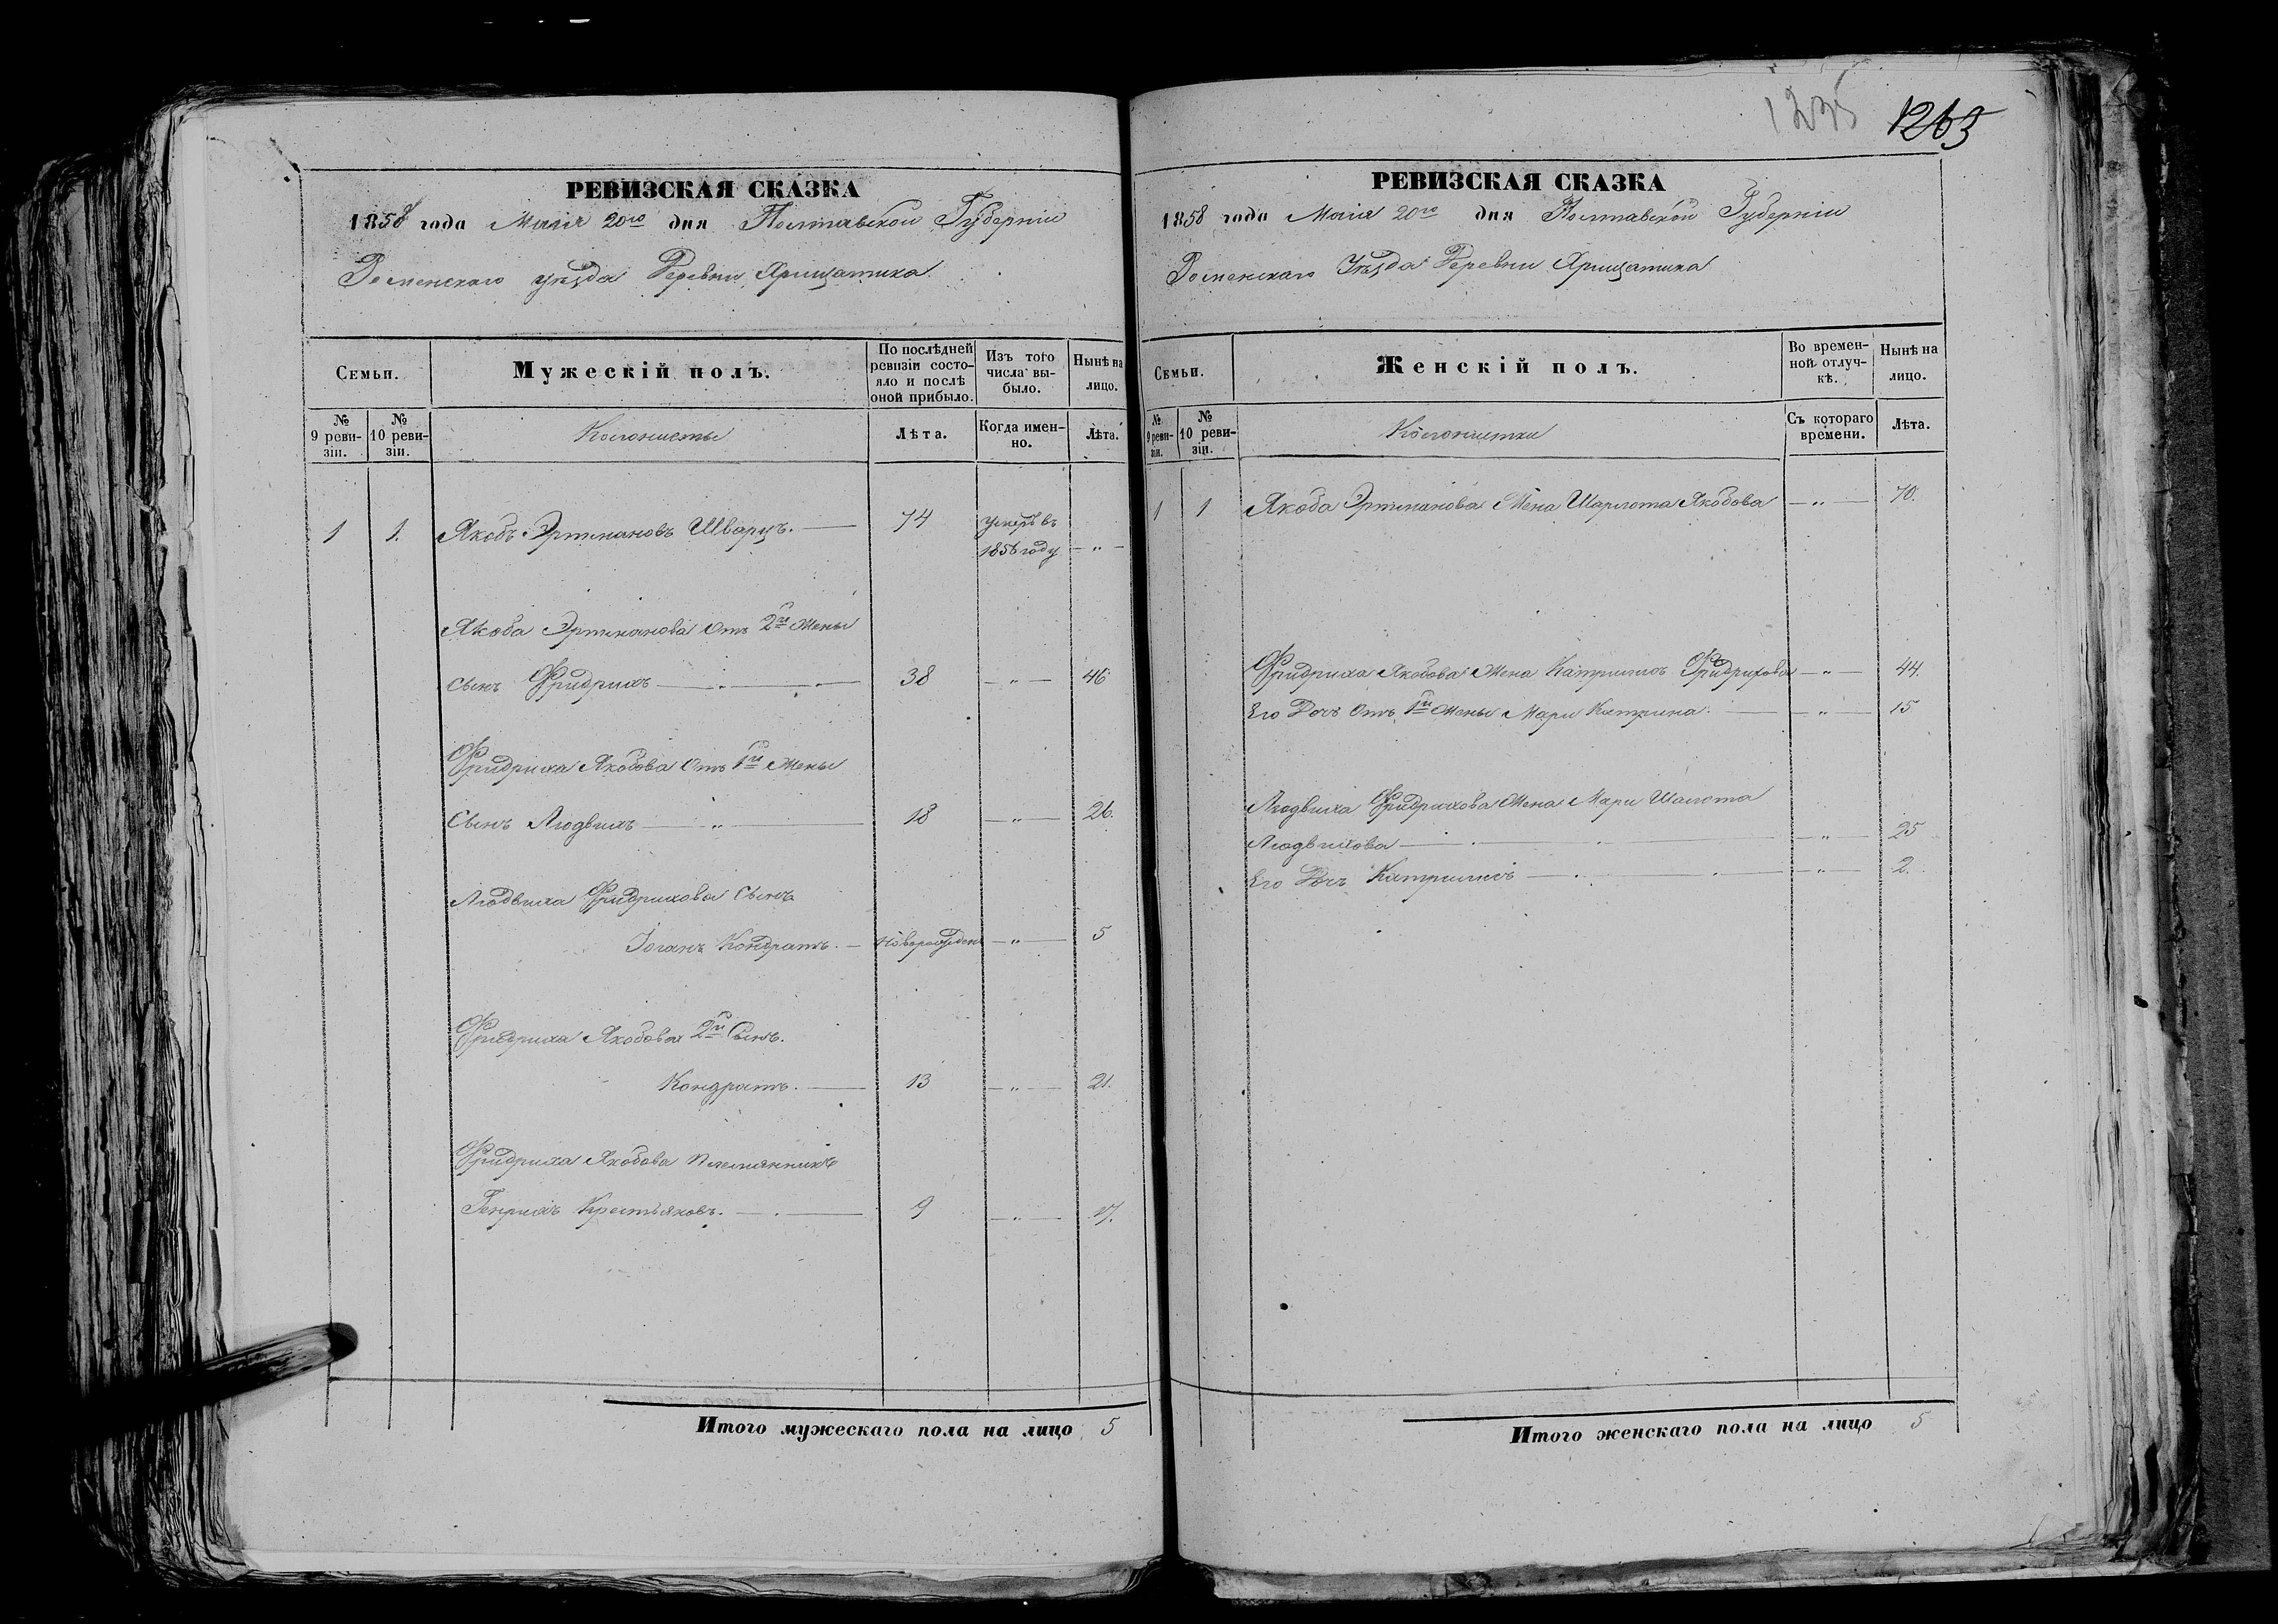 1235 1263
РЕВИЗСКАЯ СКАЗКА
1858 года Маія 20го дня Полтавской Губерніи
Роменскаго уѣзда Деревни
Семьи.
Мужескій полъ.
По послѣдней ревизіи состояло и послѣ оной прибыло.
Изъ того числа выбыло.
Нынѣ на лицо.
№ 9 ревизіи.
№ 10 ревизіи.
Колонисты
Лѣта.
Когда именно.
Лѣта.
1 1. Якобъ Эртмановъ Шварцъ. 74 умеръ въ
1856 году — „ —
Якоба Эртманова отъ 2й жены
сынъ Фридрихъ 38 — „ — 46
Фридриха Якобова отъ 1й жены
Сынъ Людвихъ — „ — 18 — „ — 26.
Людвиха Фридрихова Сынъ
Іоганъ Кондратъ. — новорожден — „ — 5
Фридриха Якобова 2й Сынъ.
Кондратъ. — 13 — „ — 21.
Фридриха Якобова племянникъ
Генрихъ 9 — „ — 17.
Итого мужескаго пола на лицо 5
РЕВИЗСКАЯ СКАЗКА
1858 года Маія 20го дня Полтавской Губерніи
Роменскаго Уѣзда Деревни
Семьи.
Женскій полъ.
Во временной отлучкѣ.
Нынѣ на лицо.
№ 9 ревизіи.
№ 10 ревизіи.
Колонистки
Съ котораго времени.
Лѣта.
1 1 Якоба Эртманова Жена Шарлота Якобова — „ — 70.
Фридриха Якобова Жена Фридрихова — „ — 44.
Его Дочь отъ 1й жены Мари Катрина. — „ — 15
Людвиха Фридрихова Жена Мари Шалота
Людвихова — „ — 25
Его Дочь — „ — 2.
Итого женскаго пола на лицо 5